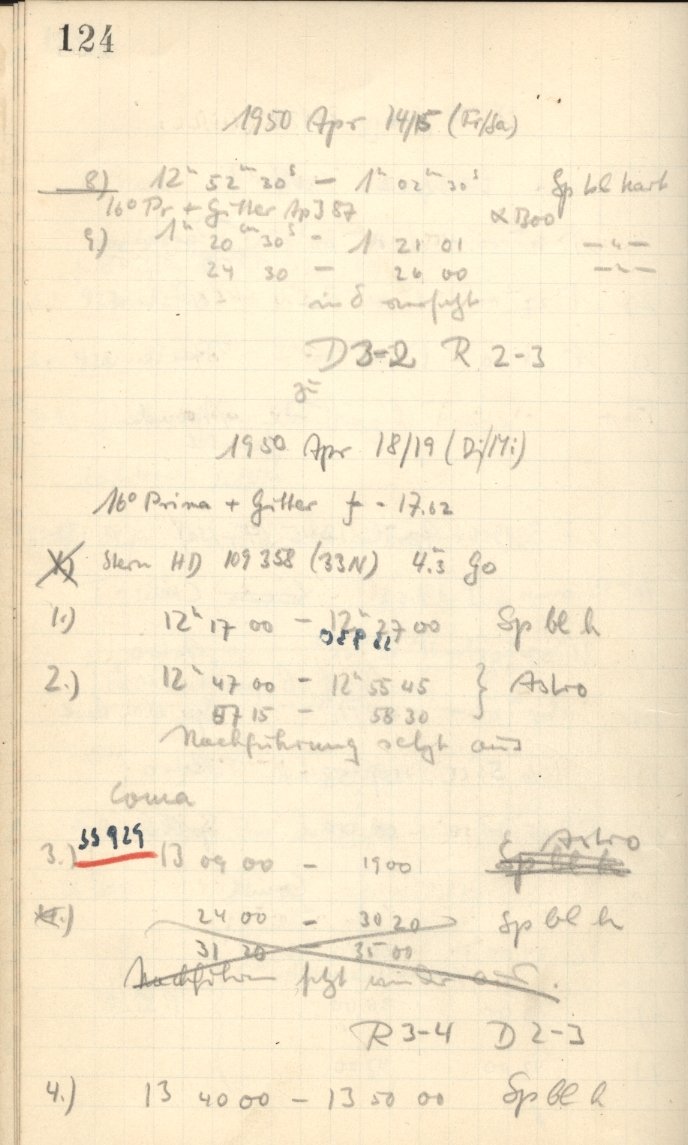 124
1950 Apr 14/15 (Fr/Sa)
8) 12ʰ 52ᵐ 30ˢ — 1ʰ 02ᵐ 30ˢ Sp bl hart
16° Pr + Gitter Ap 387 α Boo
9) 1ʰ 20ᵐ 30ˢ - 1 21 01 — " —
24 30 — 26 00 — " —
in δ
D 3-2 R 2-3
1950 Apr 18/19 (Di/Mi)
16° Prisma + Gitter f - 17.62
X) Stern HD 109358 (33N) 4.3 G0
1.) 12ʰ 17 00 — 12ʰ 27 00 Sp bl h
2.) 12ʰ 47 00 — 12ʰ 55 45 } Astro
57 15 — 58 30
Nachführung setzt aus
Coma
33929
3.) 13 09 00 — 19 00 Astro Sp bl h
4.) 24 00 — 30 20 Sp bl h
31 20 — 35 00
Nachführen setzt wieder aus.
R 3-4 D 2-3
4.) 13 40 00 — 13 50 00 Sp bl h